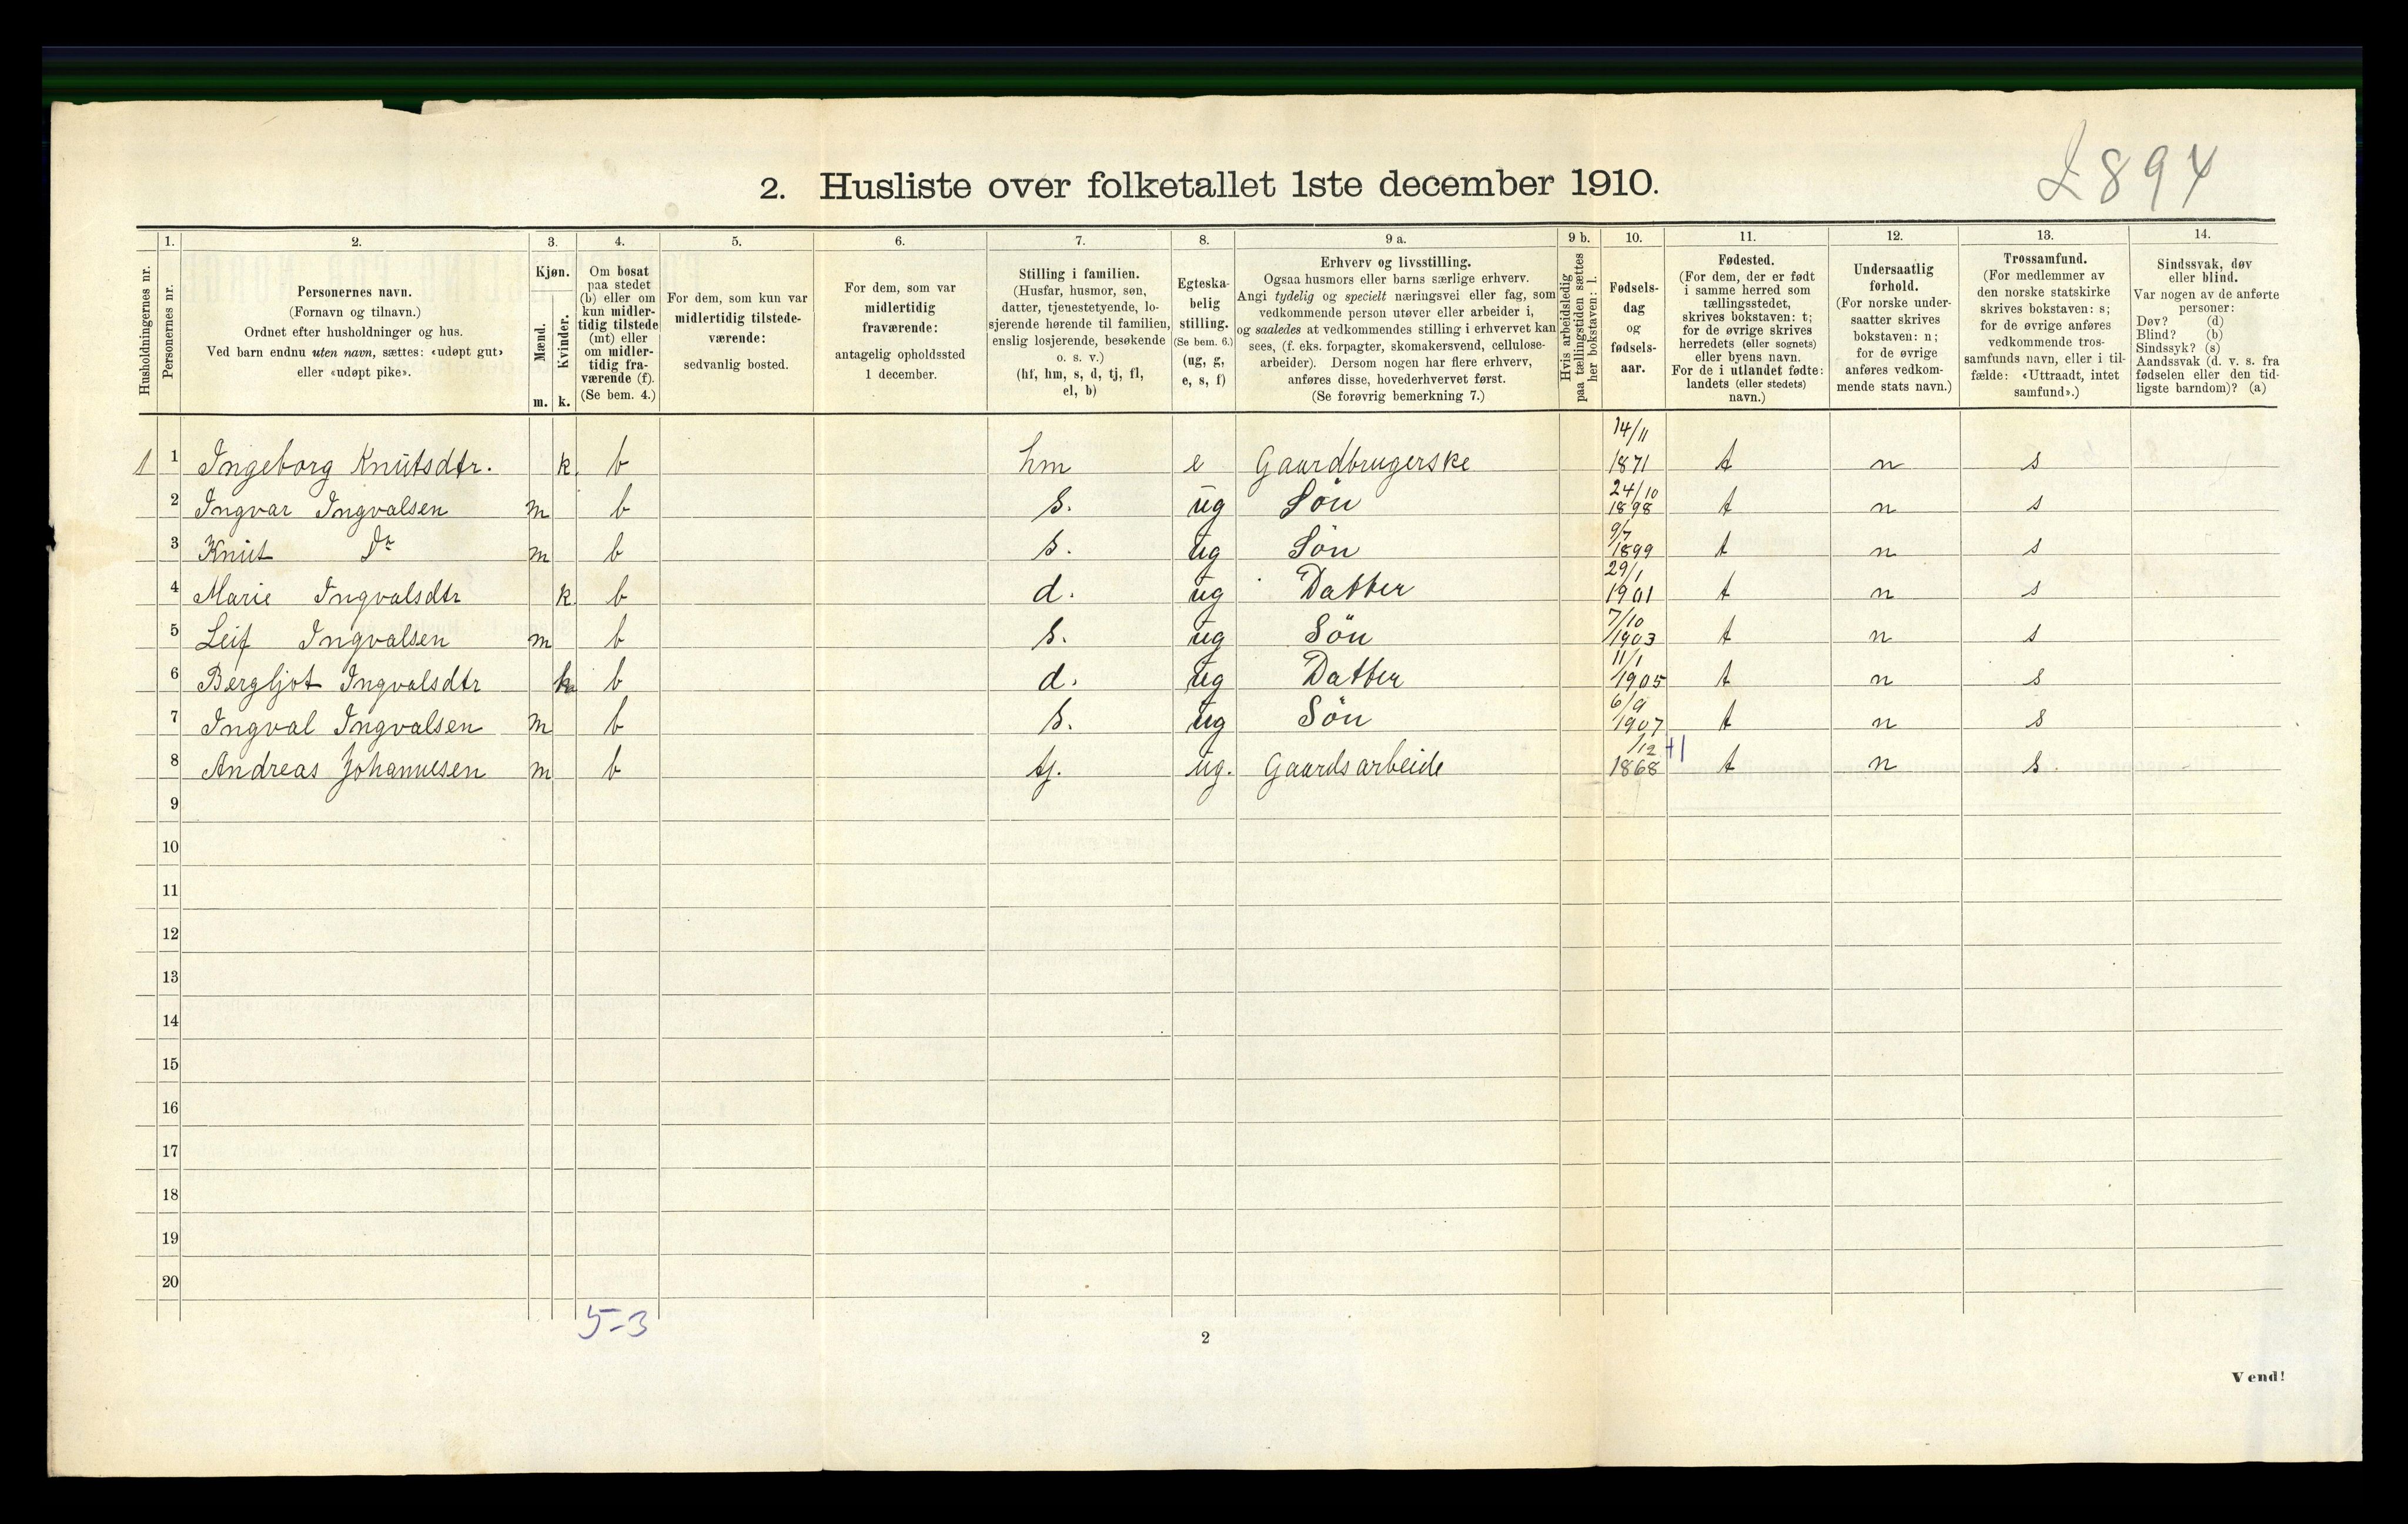 2. Husliste over folketallet 1ste december 1910.
894
Husholdningernes nr.
1.
Personernes nr.
2.
Personernes navn.
(Fornavn og tilnavn.)
Ordnet efter husholdninger og hus.
Ved barn endnu uten navn, sættes: «udøpt gut»
eller «udøpt pike».
3.
Kjøn.
Mænd.
Kvinder.
m. k.
4.
Om bosat
paa stedet
(b) eller om
kun midler-
tidig tilstede
(mt) eller
om midler-
tidig fra-
værende (f).
(Se bem. 4.)
5.
For dem, som kun var
midlertidig tilstede-
værende:
sedvanlig bosted.
6.
For dem, som var
midlertidig
fraværende:
antagelig opholdssted
1 december.
7.
Stilling i familien.
(Husfar, husmor, søn,
datter, tjenestetyende, lo-
sjerende hørende til familien,
enslig losjerende, besøkende
o. s. v.)
(hf, hm, s, d, tj, fl,
el, b)
8.
Egteska-
belig
stilling.
(Se bem. 6.)
(ug, g,
e, s, f)
9 a.
Erhverv og livsstilling.
Ogsaa husmors eller barns særlige erhverv.
Angi tydelig og specielt næringsvei eller fag, som
vedkommende person utøver eller arbeider i,
og saaledes at vedkommendes stilling i erhvervet kan
sees, (f. eks. forpagter, skomakersvend, cellulose-
arbeider). Dersom nogen har flere erhverv,
anføres disse, hovederhvervet først.
(Se forøvrig bemerkning 7.)
9 b.
Hvis arbeidsledig
paa tællingstiden sættes
her bokstaven: l.
10.
Fødsels-
dag
og
fødsels-
aar.
11.
Fødested.
(For dem, der er født
i samme herred som
tællingsstedet,
skrives bokstaven: t;
for de øvrige skrives
herredets (eller sognets)
eller byens navn.
For de i utlandet fødte:
landets (eller stedets)
navn.)
12.
Undersaatlig
forhold.
(For norske under-
saatter skrives
bokstaven: n;
for de øvrige
anføres vedkom-
mende stats navn.)
13.
Trossamfund.
(For medlemmer av
den norske statskirke
skrives bokstaven: s;
for de øvrige anføres
vedkommende tros-
samfunds navn, eller i til-
fælde: «Uttraadt, intet
samfund».)
14.
Sindssvak, døv
eller blind.
Var nogen av de anførte
personer:
Døv? (d)
Blind? (b)
Sindssyk? (s)
Aandssvak (d. v. s. fra
fødselen eller den tid-
ligste barndom)? (a)
1 1 Ingeborg Knutsdtr. k b hm e Gaardbrugerske 14/11 1871 t n s
2 Ingvar Ingvalsen m b s. ug Søn 24/10 1898 t n s
3 Knut Do m b s. ug Søn 9/7 1899 t n s
4 Marie Ingvalsdtr k b d. ug Datter 29/1 1901 t n s
5 Leif Ingvalsen m b s. ug Søn 7/10 1903 t n s
6 Bergljot Ingvalsdtr k b d. ug Datter 11/1 1905 t n s
7 Ingval Ingvalsen m b s. ug Søn 6/9 1907 t n s
8 Andreas Johannesen m b tj. ug. Gaardsarbeide 1/12 1868 t n s.
9
10
11
12
13
14
15
16
17
18
19
20
5-3
2
Vend!